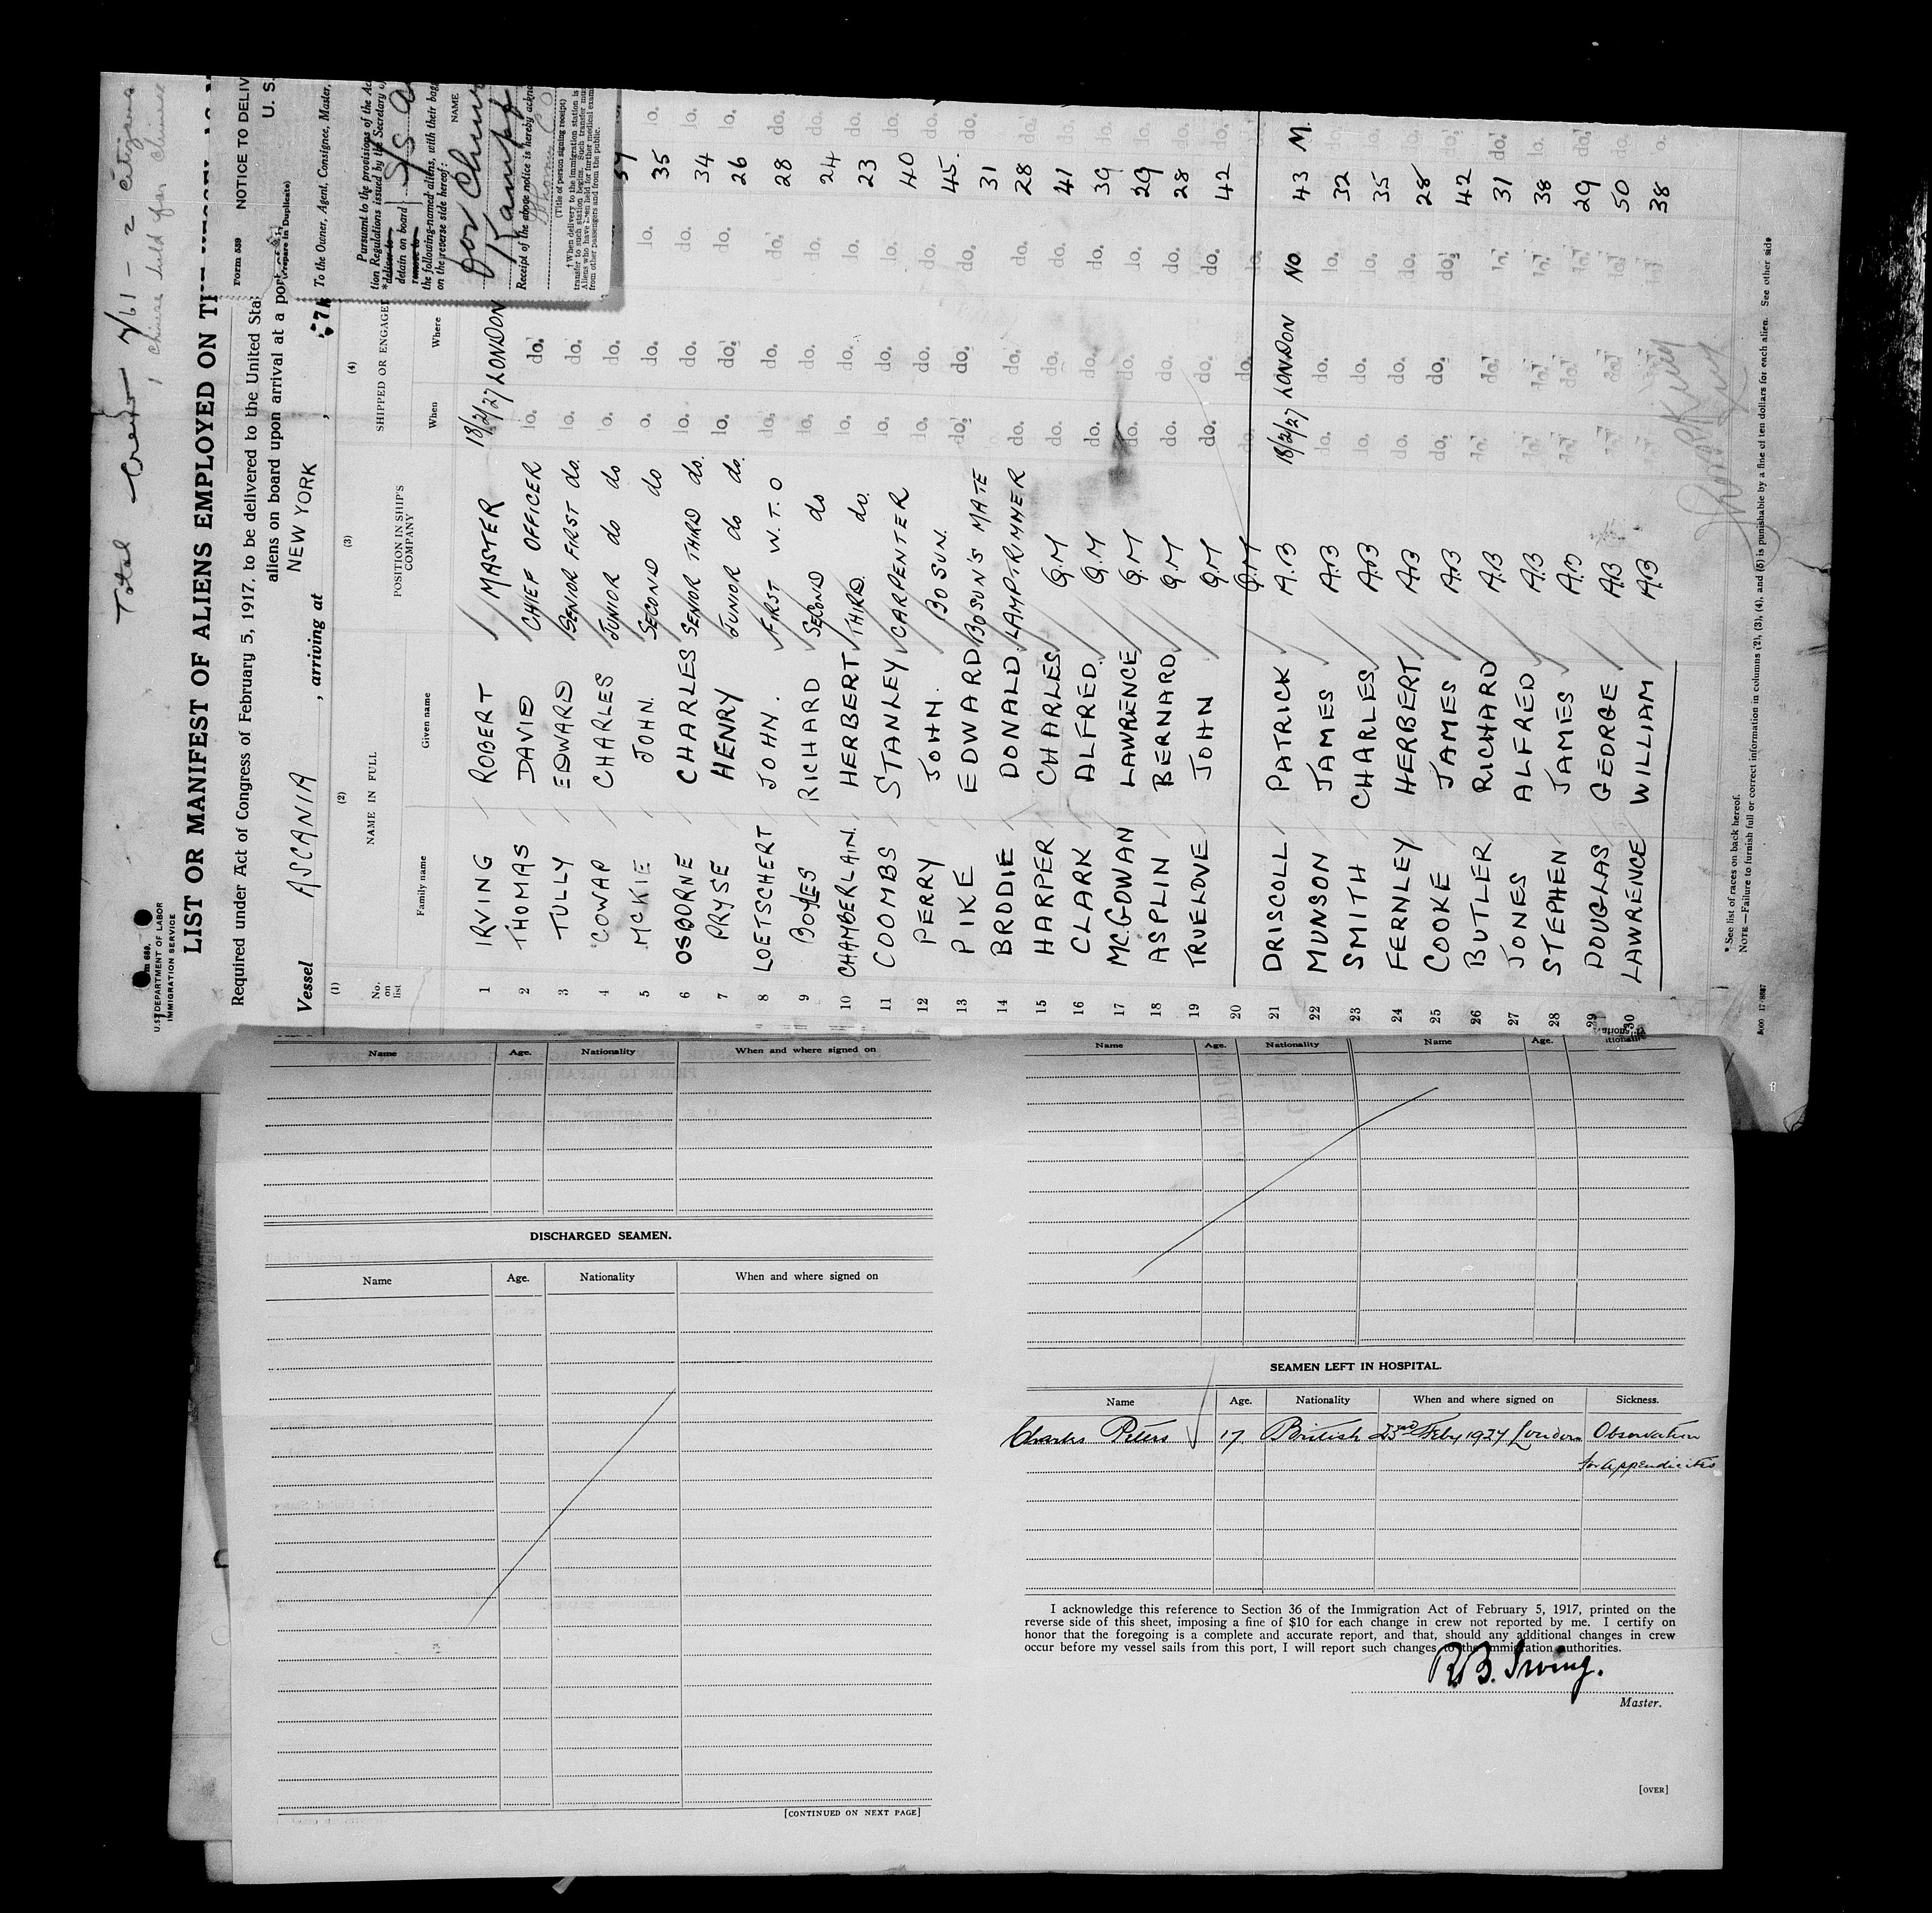 Total Crew 161 - 2 citizens
1 Chinese held for Chinese
U. S. DEPARTMENT OF LABOR
IMMIGRATION SERVICE
LIST OR MANIFEST OF ALIENS EMPLOYED ON
Required under Act of Congress of February 5, 1917, to be delivered to the United Sta
aliens on board upon arrival at a port
Vessel ASCANIA , arriving at NEW YORK ,
Form 539 NOTICE TO DELIV
U. S.
(Prepare in Duplicate)
To the Owner, Agent, Consignee, Master,
Pursuant to the provisions of the Ac
tion Regulations issued by the Secretary
* deliver to
detain on board S/S
remove to
the following-named aliens, with their bag
on the reverse side hereof:
NAME
Receipt of the above notice is hereby ackno
(Title of person signing receipt)
† When delivery to the immigration station is
transfer to such station begins. Such transfer mus
Aliens who have been held for further medical exam
from other passengers and from the public.
(1) (2) (3) (4)
No. on list NAME IN FULL POSITION IN SHIP'S COMPANY SHIPPED OR ENGAGED
Family name Given name When Where
1 IRVING ROBERT MASTER 18/2/27 LONDON
2 THOMAS DAVID CHIEF OFFICER do. do.
3 TULLY EDWARD SENIOR FIRST do. do. do.
4 COWAP CHARLES JUNIOR do do do. do. 34
5 MCKIE JOHN. SECOND do do. do. do. 35 do.
6 OSBORNE CHARLES SENIOR THIRD do. do. do. do. 34 do.
7 PRYSE HENRY JUNIOR do do. do. do. do. 26 do.
8 LOETSCHERT JOHN. FIRST W.T.O do. do. do. 28 do.
9 BOYLES RICHARD SECOND do do. do. do. 24 do.
10 CHAMBERLAIN. HERBERT THIRD. do. do. do. do. 23 do.
11 COOMBS STANLEY CARPENTER do. do. do. 40 do.
12 PERRY JOHN. BOSUN. do. do. do. 45. do.
13 PIKE EDWARD BOSUN'S MATE do. do. do. 31 do.
14 BRODIE DONALD. LAMPTRIMMER do. do. do. 28 do.
15 HARPER CHARLES Q.M do. do. do. 41 do.
16 CLARK ALFRED. Q.M do. do. do. 39 do.
17 MC.GOWAN LAWRENCE Q.M do. do. do. 29 do.
18 ASPLIN BERNARD Q.M do. do. do. 28 do.
19 TRUELOVE JOHN Q.M do. do. do. 42 do.
20 Q.M do. do. do. do.
21 DRISCOLL PATRICK A.B 18/2/27 LONDON NO 43 M.
22 MUNSON JAMES A.B do. do. do. 32 do.
23 SMITH CHARLES A.B do. do. do. 35 do.
24 FERNLEY HERBERT A.B do. do. do. 28 do.
25 COOKE JAMES A.B do. do. do. 42 do.
26 BUTLER RICHARD A.B do. do. do. 31 do.
27 JONES ALFRED A.B do. do. do. 38 do.
28 STEPHEN JAMES A.B do. do. do. 29 do.
29 DOUGLAS GEORGE A.B do. do. do. 50 do.
30 LAWRENCE WILLIAM A.B do. do. do. 38 do.
* See list of races on back hereof.
NOTE.—Failure to furnish full or correct information in columns (2), (3), (4), and (5) is punishable by a fine of ten dollars for each alien. See other side
Name Age. Nationality When and where signed on
Name Age. Nationality Name Age.
DISCHARGED SEAMEN.
Name Age. Nationality When and where signed on
[CONTINUED ON NEXT PAGE]
SEAMEN LEFT IN HOSPITAL.
Name Age. Nationality When and where signed on Sickness.
Charles Peters 17 British 23rd Feby 1927 London Observation
for appendicitis
I acknowledge this reference to Section 36 of the Immigration Act of February 5, 1917, printed on the
reverse side of this sheet, imposing a fine of $10 for each change in crew not reported by me. I certify on
honor that the foregoing is a complete and accurate report, and that, should any additional changes in crew
occur before my vessel sails from this port, I will report such changes to the immigration authorities.
R.B. Irving.
Master.
[OVER]